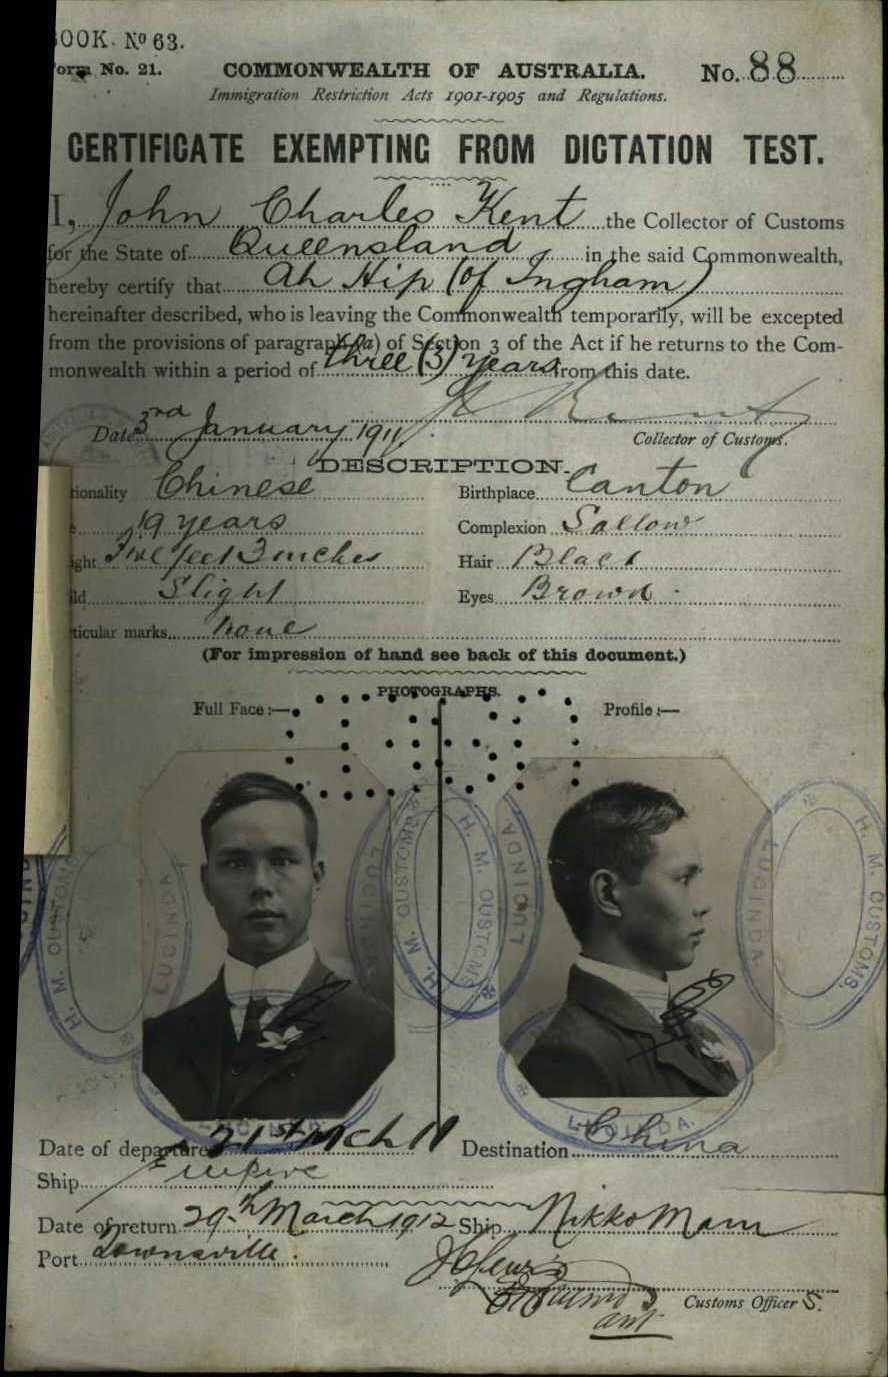 BOOK. No 63.
Form No. 21. COMMONWEALTH OF AUSTRALIA. No. 88
Immigration Restriction Acts 1901-1905 and Regulations.
CERTIFICATE EXEMPTING FROM DICTATION TEST.
I, John Charles Kent the Collector of Customs
for the State of Queensland in the said Commonwealth,
hereby certify that Ah Hip (of Ingham)
hereinafter described, who is leaving the Commonwealth temporarily, will be excepted
from the provisions of paragraph (a) of Section 3 of the Act if he returns to the Com-
monwealth within a period of three (3) years from this date.
Date 3rd January 1911
Collector of Customs.
DESCRIPTION.
tionality Chinese Birthplace Canton
19 years Complexion Sallow
ight Five feet 3 inches Hair Black
ld Slight Eyes Brown
ticular marks none
(For impression of hand see back of this document.)
PHOTOGRAPHS.
Full Face:— Profile:—
H. M. CUSTOMS LUCINDA
H. M. CUSTOMS LUCINDA
H. M. CUSTOMS LUCINDA
H. M. CUSTOMS. LUCINDA
LUCINDA.
Date of departure 21st Mch 11 Destination China
Ship Empire
Date of return 29th March 1912 Ship Nikko Maru
Port Townsville.
Customs Officer S.